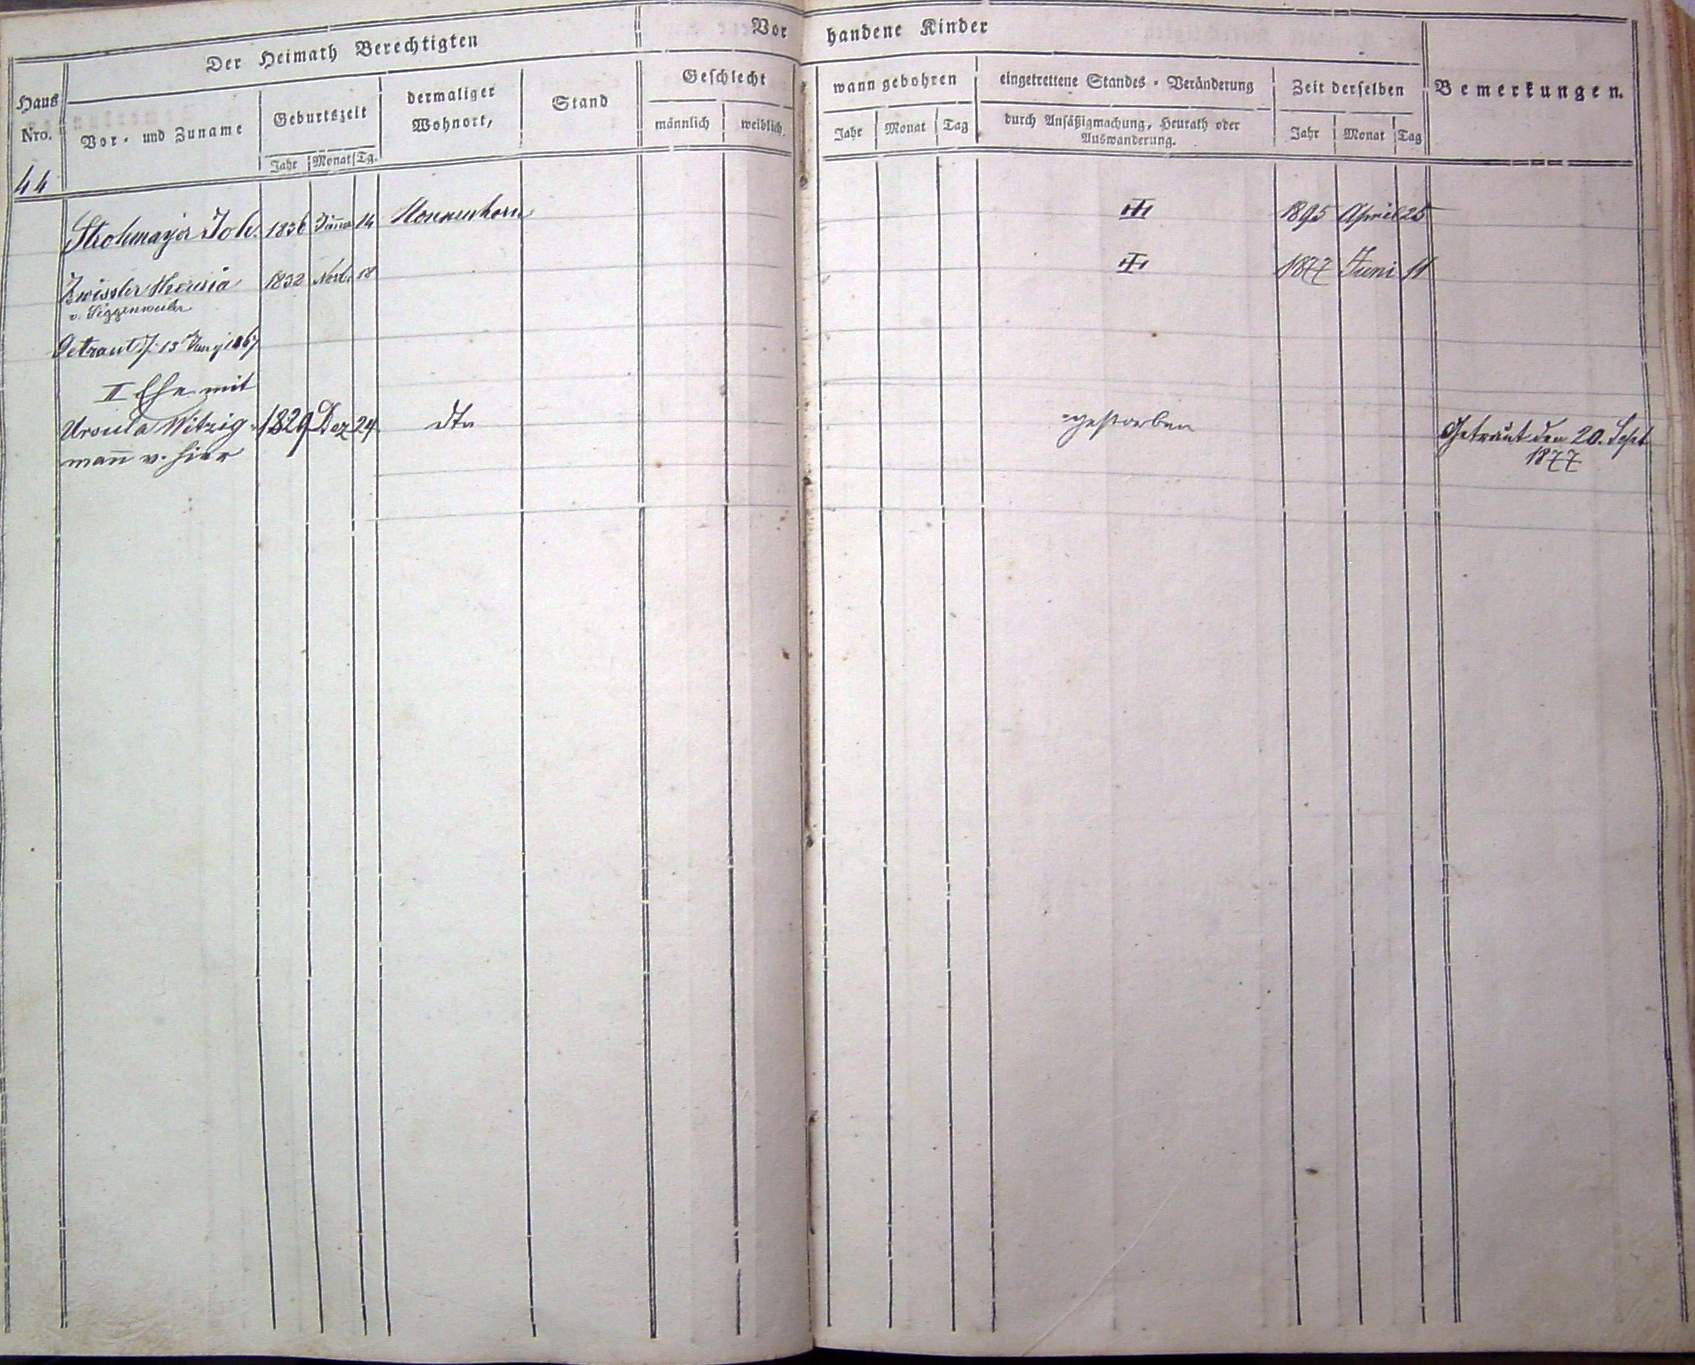 Der Heimath Berechtigten
Vor handene Kinder
Haus Nro.
Vor- und Zuname
Geburtszeit
Jahr Monat Tg.
dermaliger Wohnort,
Stand
Geschlecht
männlich weiblich.
wann gebohren
Jahr Monat Tag
eingetrettene Standes-Veränderung
durch Ansäßigmachung, Heurath oder
Auswanderung.
Zeit derselben
Jahr Monat Tag
Bemerkungen.
44
Strohmayer Joh. 1836 14 Nonnenhorn 1895 April 25
Zwissler Theresia 1832 Novb. 18 1877 Juni 11
v. Siggenweiler
Getraut d. 13 1867
II Ehe mit
Ursula Witzig- 1829 Dez 24 dto gestorben Getraut den 20. Sept
mañ v. hier 1877